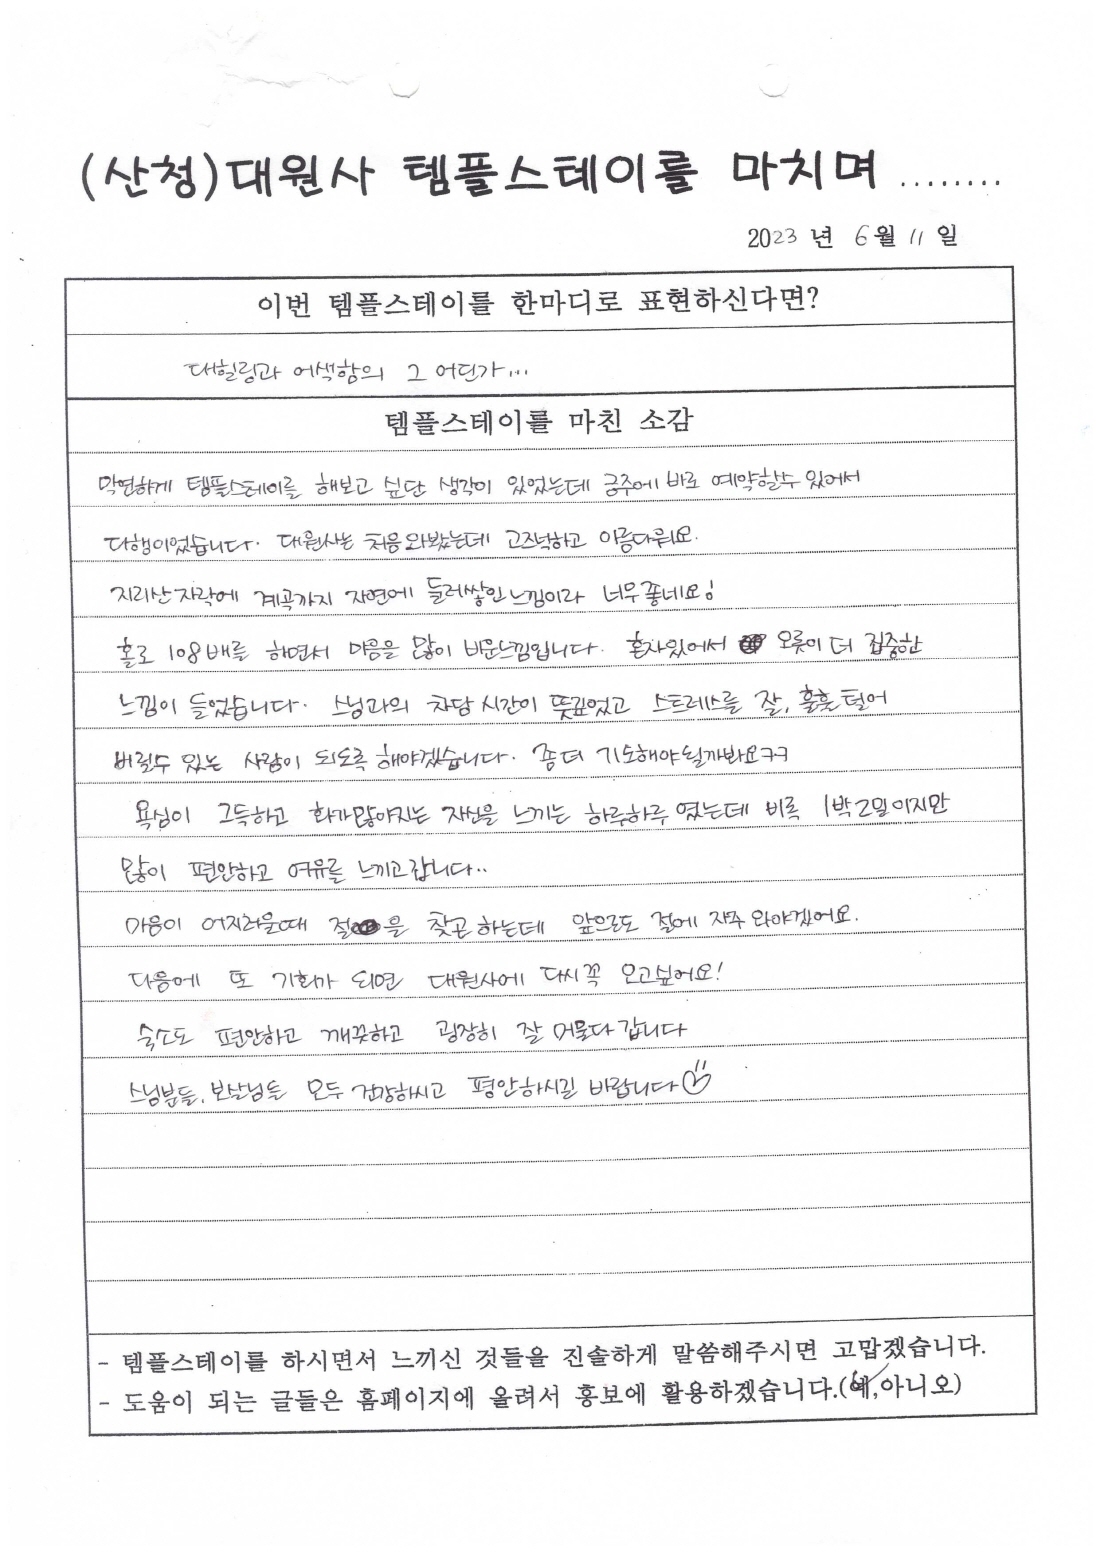 (산청)대원사 템플스테이를 마치며 ........
2023 년 6월 11 일
이번 템플스테이를 한마디로 표현하신다면?
대힐링과 어색함의 그 어딘가...
템플스테이를 마친 소감
막연하게 템플스테이를 해보고 싶단 생각이 있었는데 금주에 바로 예약할수 있어서
다행이었습니다. 대원사는 처음 와봤는데 고즈넉하고 아름다워요.
지리산 자락에 계곡까지 자연에 둘러쌓인 느낌이라 너무 좋네요!
홀로 108배를 하면서 마음을 많이 비운느낌입니다. 혼자있어서 오롯이 더 집중한
느낌이 들었습니다. 스님과의 차담 시간이 뜻깊었고 스트레스를 잘, 훌훌 털어
버릴수 있는 사람이 되도록 해야겠습니다. 좀더 기도해야 될까봐요ㅋㅋ
욕심이 그득하고 화가많아지는 자신을 느끼는 하루하루 였는데 비록 1박2일이지만
많이 편안하고 여유를 느끼고갑니다..
마음이 어지러울때 절을 찾곤 하는데 앞으로도 절에 자주 와야겠어요.
다음에 또 기회가 되면 대원사에 다시 꼭 오고싶어요!
숙소도 편안하고 깨끗하고 굉장히 잘 머물다 갑니다
스님분들, 보살님들 모두 건강하시고 평안하시길 바랍니다
- 템플스테이를 하시면서 느끼신 것들을 진솔하게 말씀해주시면 고맙겠습니다.
- 도움이 되는 글들은 홈페이지에 올려서 홍보에 활용하겠습니다.(예,아니오)